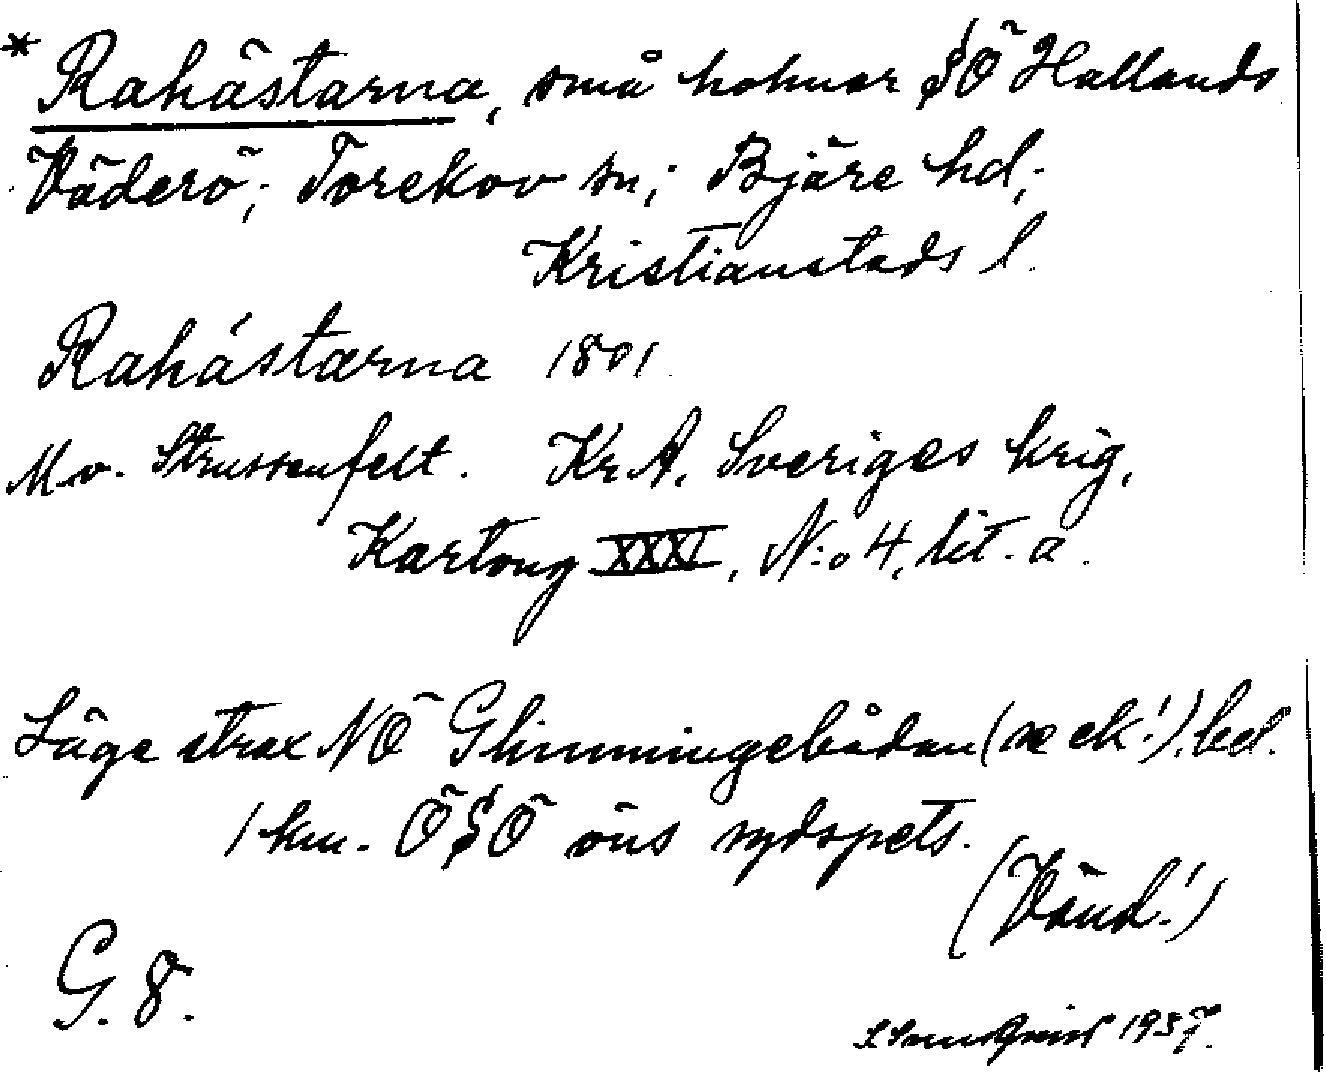 * Rahästarna, små holmar SÖ Hallands
Väderö; Torekov sn; Bjäre hd;
Kristianstads l.
Rahástarna 1801
M v. Strussenfelt. Kr A. Sveriges krig,
Kartong XXXI, N:o 4, lit. a.
Läge strax NÖ Glimmingebådan (se ek!), bel.
1 km. ÖSÖ öns sydspets.
(Vänd!)
G. 8.
1937.